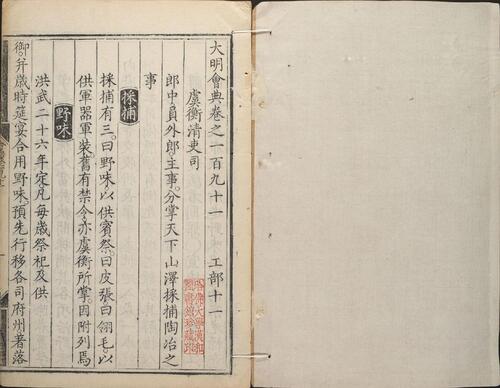 大明會典卷之一百九十一 工部十一
虞衡清吏司
郎中員外郎主事分掌天下山澤採捕陶冶之
事
採捕
採捕有三曰野味以供賓祭曰皮張曰翎毛以
供軍器軍裝舊有禁令亦虞衡所掌因附列焉
野味
洪武二十六年定凡每歲祭祀及供
御并歲時筵宴合用野味預先行移各司府州著落